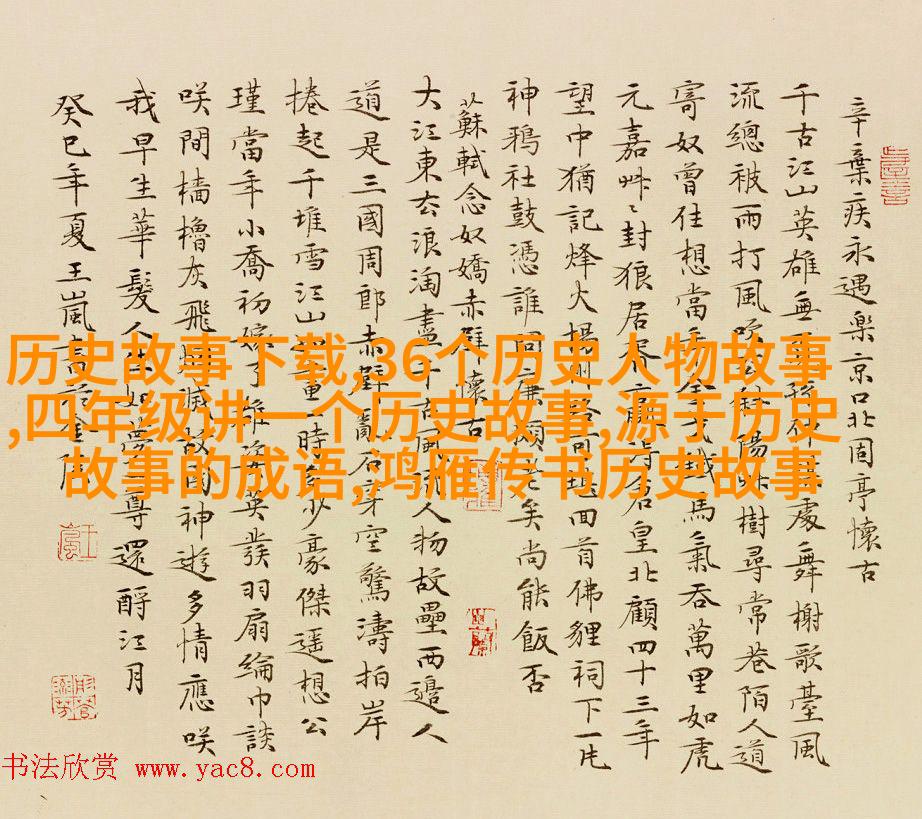 历史故事下载,36个历史人物故事
,四年级讲一个历史故事,源于历史
故事的成语,鸿雁传书历史故事
辛棄疾永遇樂京口北固亭懷古
千古江山英雄無孫仲謀處舞榭歌臺風
流總被雨打風吹斜陽艸樹尋常巷陌人道
寄奴曾住想當年金戈鐵馬氣吞萬里如虎
元嘉艸〻封狼居胥得倉皇北顧四十三年
望中猶記烽火揚州路可堪回首佛貍祠下一片
神鴉社鼓憑誰問廉頗老矣尚能飯否
蘇軾念奴嬌赤壁懷古
大江東去浪淘盡千古風流人物故壘西邊人
道是三國周郎赤壁亂石穿空驚濤拍岸
捲起千堆雪江山如畫一時多少豪傑遥想公
瑾當年小喬初嫁了雄姿英發羽扇綸巾談
咲間檣櫓灰飛煙滅故國神遊多情應咲
我早生華髮人生如夢一尊還酹江月
癸巳年夏王嵐書於金陵
书法欣赏 www.yac8.com